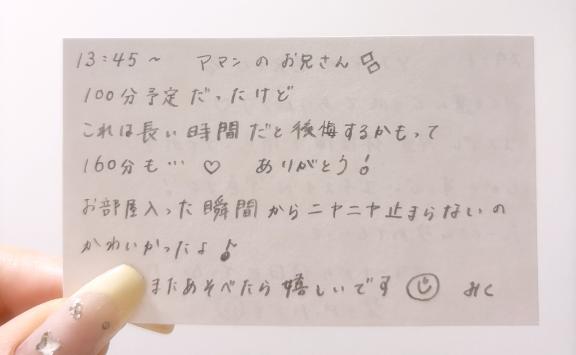 13:45～ アマンのお兄さん
100分予定だったけど
これは長い時間だと後悔するかもって
160分も…♡ ありがとう!
お部屋入った瞬間からニヤニヤ止まらないの
かわいかったよ♪
またあそべたら嬉しいです みく